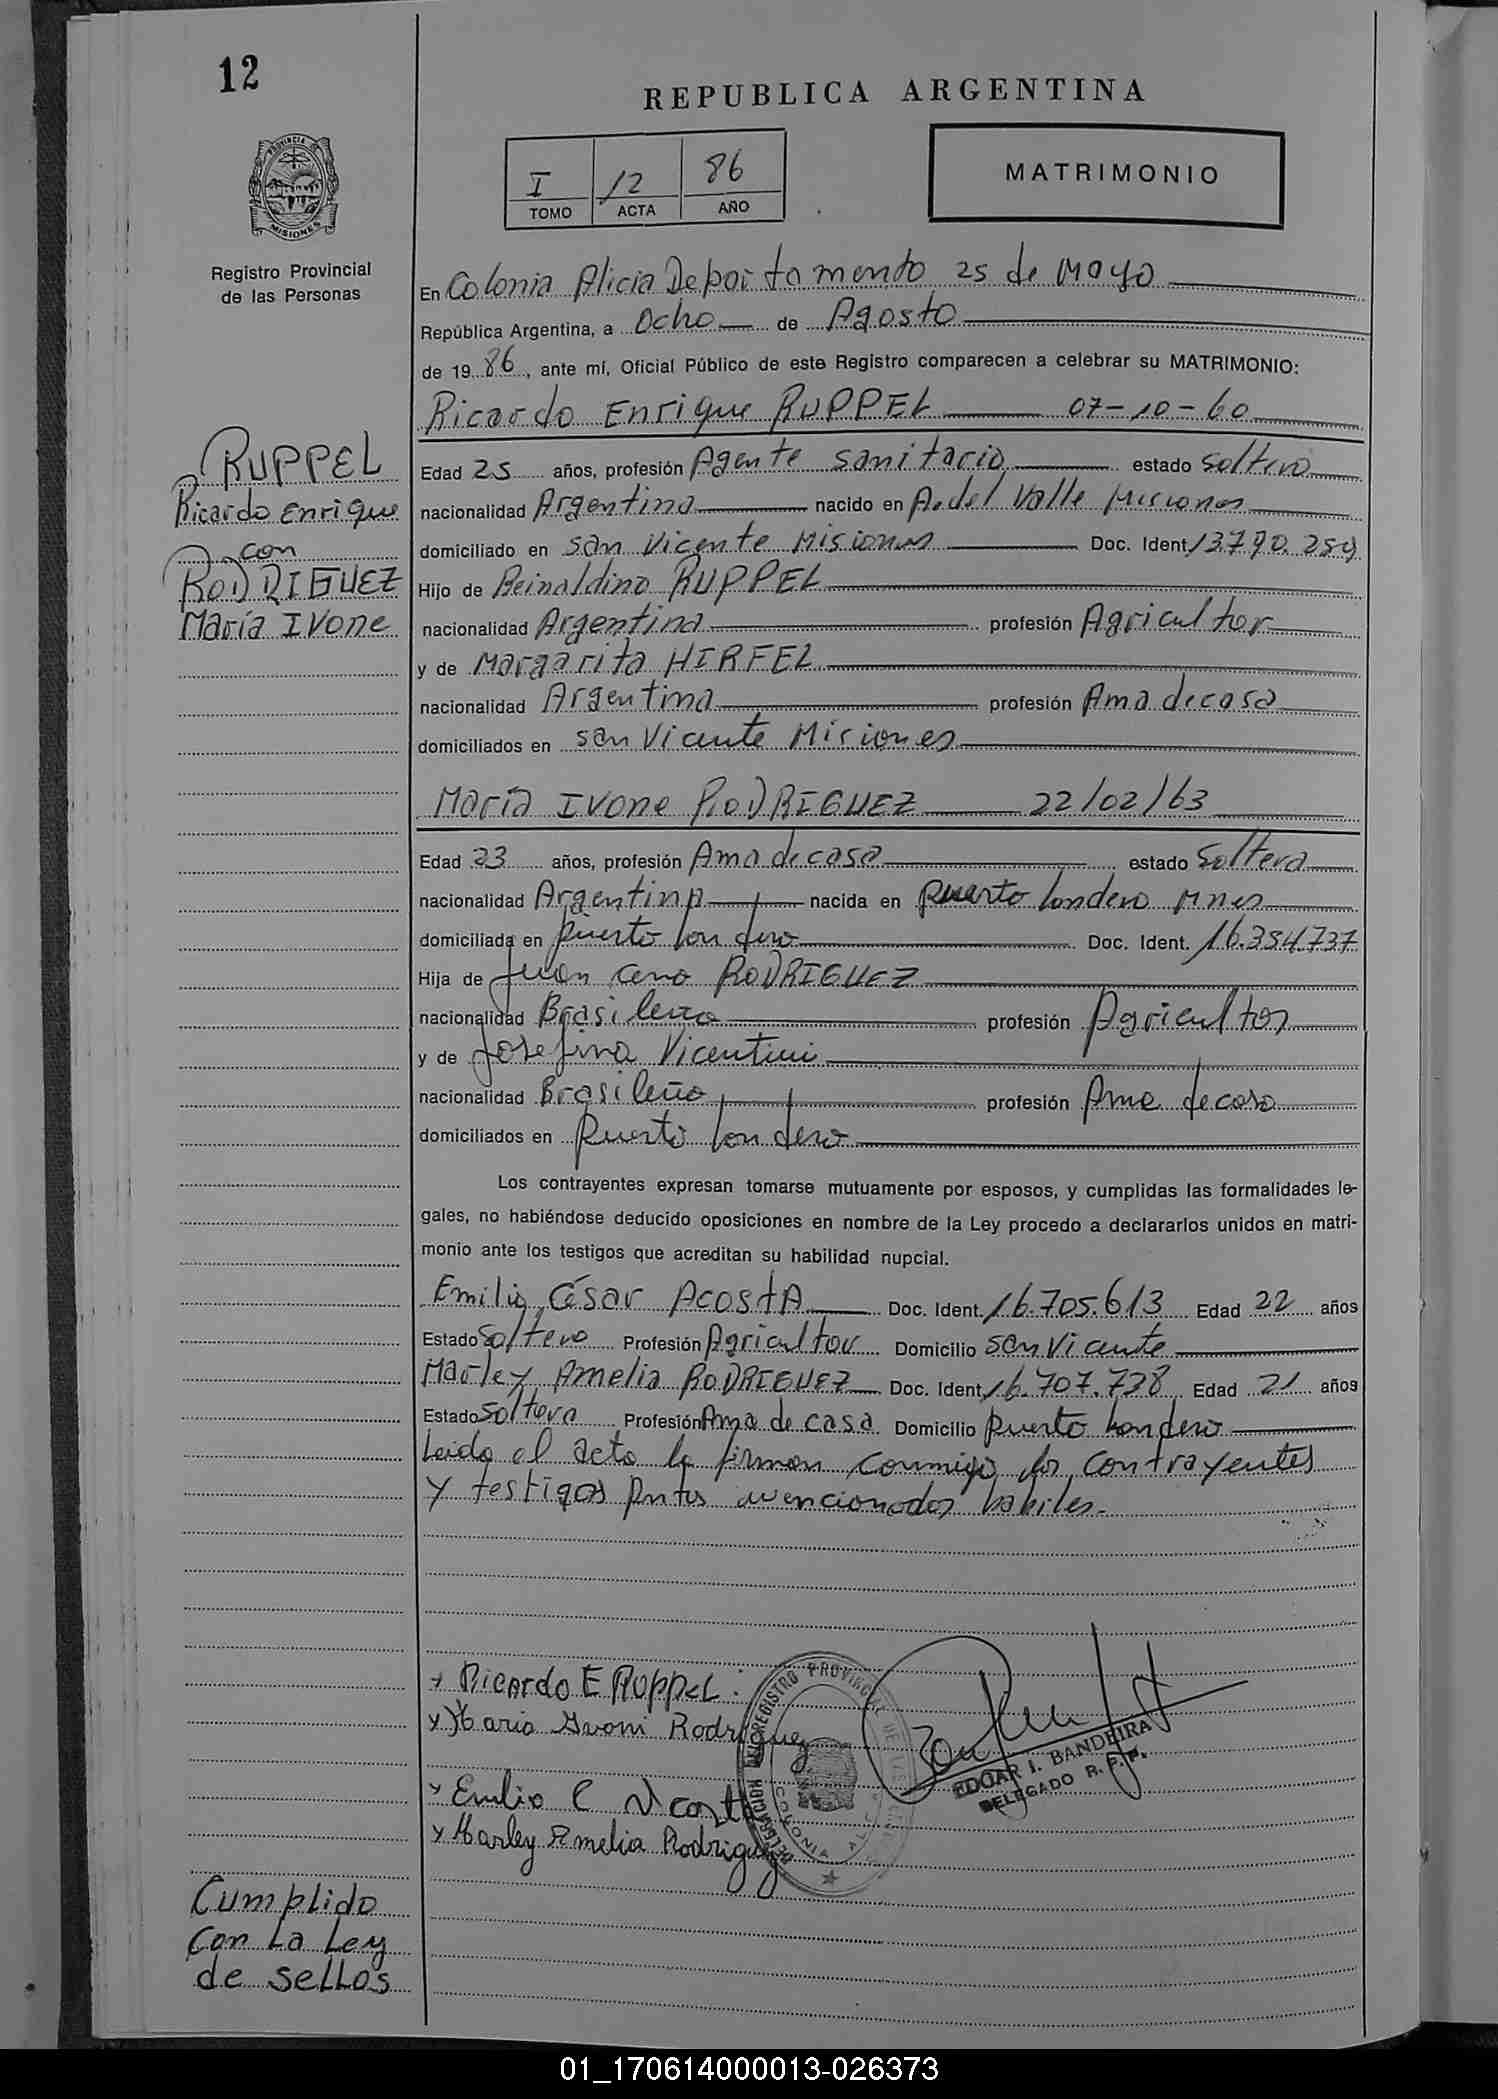 12
REPUBLICA ARGENTINA
PROVINCIA DE
MISIONES
Registro Provincial
de las Personas
I 12 86
TOMO ACTA AÑO
MATRIMONIO
En Colonia Alicia Departamento 25 de Mayo
República Argentina, a Ocho de Agosto
de 1986, ante mí, Oficial Público de este Registro comparecen a celebrar su MATRIMONIO:
Ricardo Enrique RUPPEL 07-10-60
RUPPEL
Ricardo Enrique
con
RODRIGUEZ
María Ivone
Edad 25 años, profesión Agente sanitario estado soltero
nacionalidad Argentina nacido en A. del Valle Misiones
domiciliado en san Vicente Misiones Doc. Ident. 13.790.259
Hijo de Reinaldino RUPPEL
nacionalidad Argentina profesión Agricultor
y de Margarita HIRFEL
nacionalidad Argentina profesión Ama de casa
domiciliados en san Vicente Misiones
María Ivone RODRIGUEZ 22/02/63
Edad 23 años, profesión Ama de casa estado Soltera
nacionalidad Argentina nacida en puerto londero Mnes
domiciliada en puerto londero Doc. Ident. 16.354.737
Hija de Juan RODRIGUEZ
nacionalidad Brasileña profesión Agricultor
y de Josefina Vicentini
nacionalidad Brasileña profesión Ama de casa
domiciliados en puerto londero
Los contrayentes expresan tomarse mutuamente por esposos, y cumplidas las formalidades le-
gales, no habiéndose deducido oposiciones en nombre de la Ley procedo a declararlos unidos en matri-
monio ante los testigos que acreditan su habilidad nupcial.
Emilio César ACOSTA Doc. Ident. 16.705.613 Edad 22 años
Estado Soltero Profesión Agricultor Domicilio san Vicente
Marley Amelia RODRIGUEZ Doc. Ident. 16.707.738 Edad 21 años
Estado Soltera Profesión Ama de casa Domicilio puerto londero
Leida el acta la firman conmigo los contrayentes
y testigos antes mencionados habiles.
Ricardo E Ruppel
x Maria Ivoni Rodriguez
x Emilio C Acosta
x Marley Amelia Rodriguez
REGISTRO PROVINCIAL DE LAS
COLONIA ALICIA
EDGAR I. BANDEIRA
DELEGADO R. P. P.
Cumplido
con La Ley
de seLLos
01_170614000013-026373